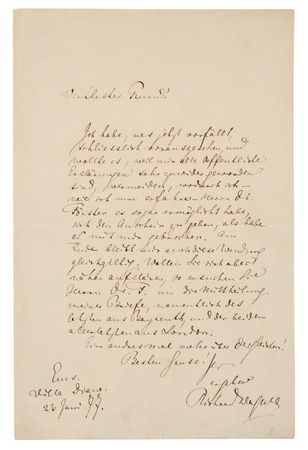 Verehrtester Freund!
Ich habe, was jetzt vorfällt,
schliesslich vorausgesehen, und
wollte es, weil mir alle öffentliche
Erklärungen sehr zuwider geworden
sind, vermeiden, wodurch ich —
wie ich nun erfahre Herrn Dr.
es sogar ermöglicht habe,
sich den Anschein zu geben, als habe
er mit mir gebrochen. Am
Ende bleibt mir auch diese Wendung
gleichgiltig. Wollen Sie sich aber
näher aufklären, so ersuchen Sie
Herrn Dr. F. um die Mittheilung
meiner Briefe, namentlich des
letzten aus Bayreuth, und der beiden
allerletzten aus London.
Ein andresmal mehr über dergleichen!
Besten Gruss! Ihr
ergebener
Richard Wagner
Ems.
Villa Diana.
23 Juni 77.